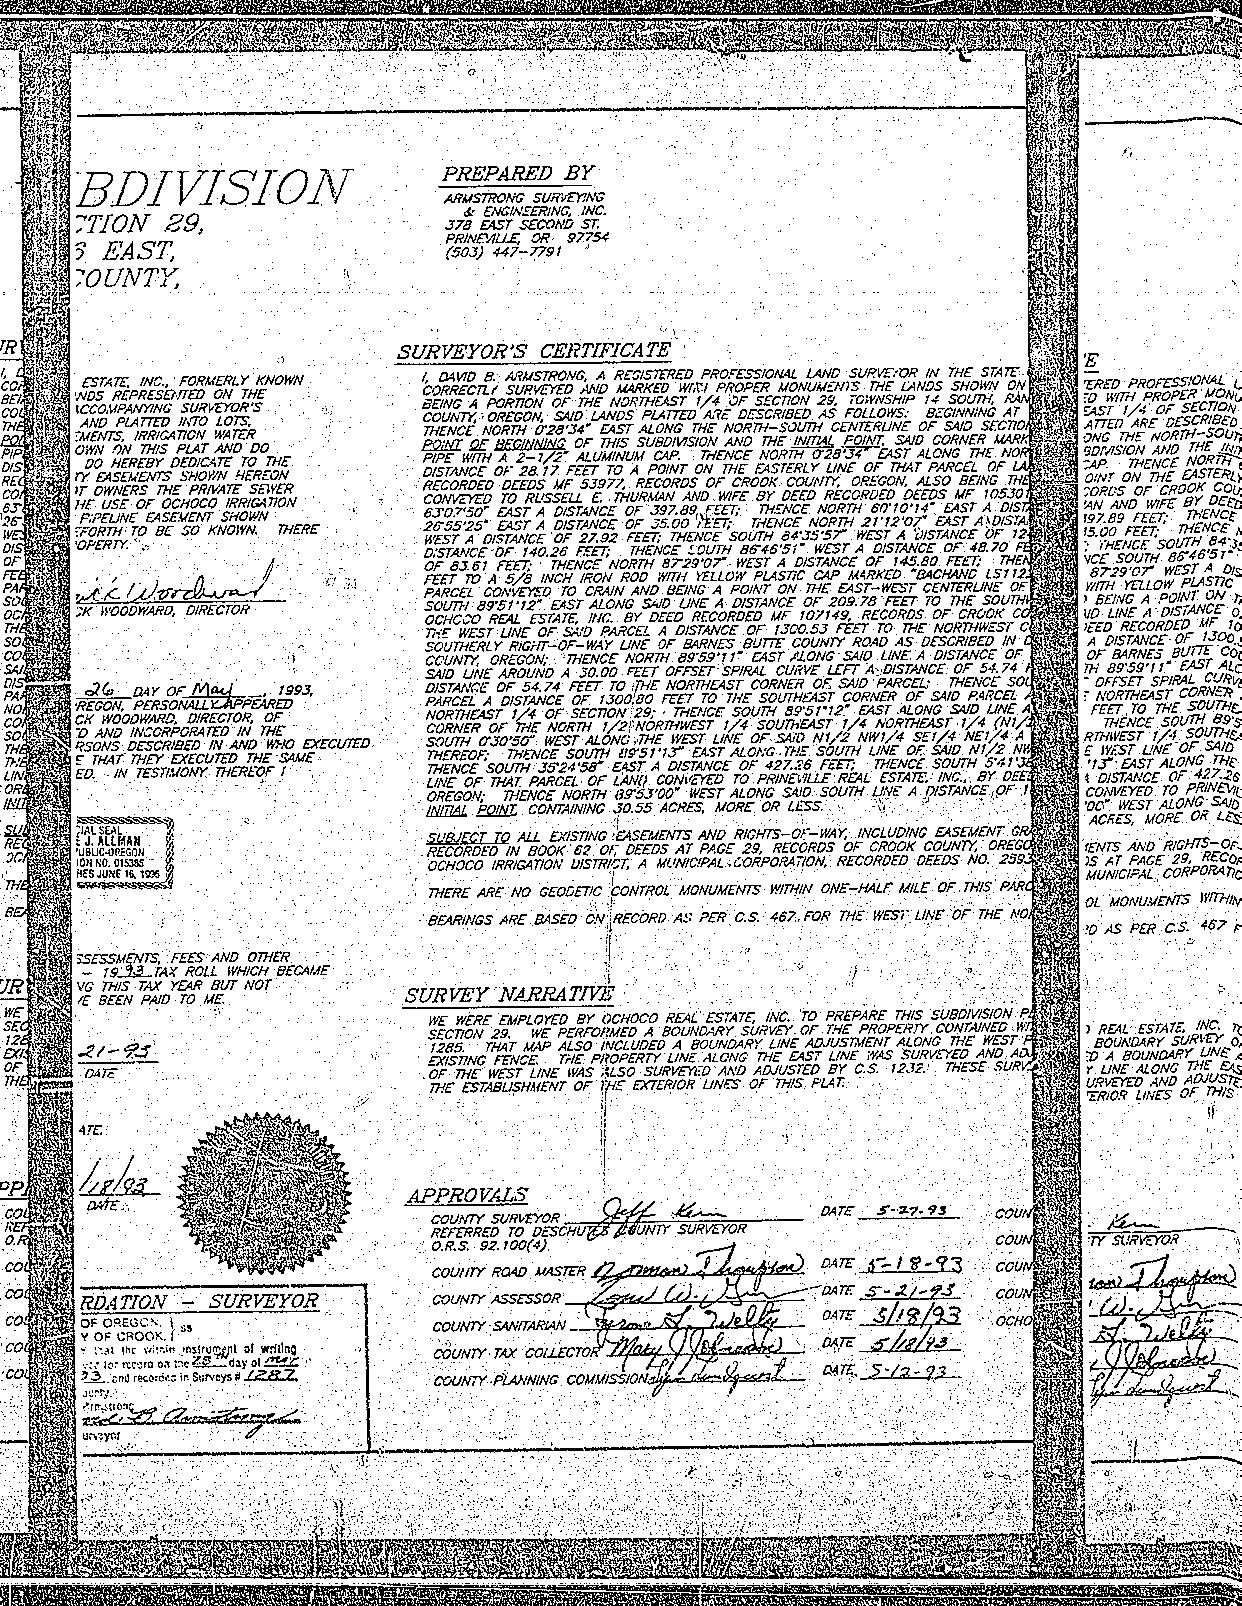 BDIVISION
CTION 29,
EAST,
COUNTY,
PREPARED BY
ARMSTRONG SURVEYING
& ENGINEERING, INC.
378 EAST SECOND ST.
PRINEVILLE, OR 97754
(503) 447-7791
ESTATE, INC., FORMERLY KNOWN
NDS REPRESENTED ON THE
ACCOMPANYING SURVEYOR'S
AND PLATTED INTO LOTS,
EMENTS, IRRIGATION WATER
OWN ON THIS PLAT AND DO
DO HEREBY DEDICATE TO THE
TY EASEMENTS SHOWN HEREON
OT OWNERS THE PRIVATE SEWER
HE USE OF OCHOCO IRRIGATION
PIPELINE EASEMENT SHOWN
FORTH TO BE SO KNOWN. THERE
OPERTY.
ck Woodward
CK WOODWARD, DIRECTOR
26 DAY OF May, 1993,
REGON, PERSONALLY APPEARED
CK WOODWARD, DIRECTOR, OF
D AND INCORPORATED IN THE
RSONS DESCRIBED IN AND WHO EXECUTED
E THAT THEY EXECUTED THE SAME
ED. IN TESTIMONY THEREOF I
IAL SEAL
E J. ALLMAN
UBLIC-OREGON
ION NO. 015385
RES JUNE 16, 1996
SSESSMENTS, FEES AND OTHER
- 1993 TAX ROLL WHICH BECAME
NG THIS TAX YEAR BUT NOT
VE BEEN PAID TO ME.
21-93
DATE
ATE
/18/93
DATE
RDATION - SURVEYOR
OF OREGON,
Y OF CROOK, ss
that the within instrument of writing
for record on the 28 day of May
93 and recorded in Surveys # 1287
unty.
Armstrong
urveyor
SURVEYOR'S CERTIFICATE
I, DAVID B. ARMSTRONG, A REGISTERED PROFESSIONAL LAND SURVEYOR IN THE STATE
CORRECTLY SURVEYED AND MARKED WITH PROPER MONUMENTS THE LANDS SHOWN ON
BEING A PORTION OF THE NORTHEAST 1/4 OF SECTION 29, TOWNSHIP 14 SOUTH, RAN
COUNTY, OREGON. SAID LANDS PLATTED ARE DESCRIBED AS FOLLOWS: BEGINNING AT
THENCE NORTH 0°28'34" EAST ALONG THE NORTH-SOUTH CENTERLINE OF SAID SECTIO
POINT OF BEGINNING OF THIS SUBDIVISION AND THE INITIAL POINT, SAID CORNER MARK
PIPE WITH A 2-1/2" ALUMINUM CAP. THENCE NORTH 0°28'34" EAST ALONG THE NOR
DISTANCE OF 28.17 FEET TO A POINT ON THE EASTERLY LINE OF THAT PARCEL OF LA
RECORDED DEEDS MF 53977, RECORDS OF CROOK COUNTY, OREGON, ALSO BEING THE
CONVEYED TO RUSSELL E. THURMAN AND WIFE BY DEED RECORDED DEEDS MF 105301
63°07'50" EAST A DISTANCE OF 397.89 FEET; THENCE NORTH 60°10'14" EAST A DIST
26°55'25" EAST A DISTANCE OF 35.00 FEET; THENCE NORTH 21°12'07" EAST A DISTA
WEST A DISTANCE OF 27.92 FEET; THENCE SOUTH 84°35'57" WEST A DISTANCE OF 12
DISTANCE OF 140.26 FEET; THENCE SOUTH 86°46'51" WEST A DISTANCE OF 48.70 FE
OF 83.61 FEET; THENCE NORTH 87°29'07" WEST A DISTANCE OF 145.80 FEET; THEN
FEET TO A 5/8 INCH IRON ROD WITH YELLOW PLASTIC CAP MARKED "BACHAND LS112
PARCEL CONVEYED TO CRAIN AND BEING A POINT ON THE EAST-WEST CENTERLINE OF
SOUTH 89°51'12" EAST ALONG SAID LINE A DISTANCE OF 209.78 FEET TO THE SOUTH
OCHOCO REAL ESTATE, INC. BY DEED RECORDED MF 107149, RECORDS OF CROOK CO
THE WEST LINE OF SAID PARCEL A DISTANCE OF 1300.53 FEET TO THE NORTHWEST C
SOUTHERLY RIGHT-OF-WAY LINE OF BARNES BUTTE COUNTY ROAD AS DESCRIBED IN D
COUNTY, OREGON; THENCE NORTH 89°59'11" EAST ALONG SAID LINE A DISTANCE OF
SAID LINE AROUND A 30.00 FEET OFFSET SPIRAL CURVE LEFT A DISTANCE OF 54.74 F
DISTANCE OF 54.74 FEET TO THE NORTHEAST CORNER OF SAID PARCEL; THENCE SOU
PARCEL A DISTANCE OF 1300.80 FEET TO THE SOUTHEAST CORNER OF SAID PARCEL A
NORTHEAST 1/4 OF SECTION 29; THENCE SOUTH 89°51'12" EAST ALONG SAID LINE A
CORNER OF THE NORTH 1/2 NORTHWEST 1/4 SOUTHEAST 1/4 NORTHEAST 1/4 (N1/2
SOUTH 0°30'50" WEST ALONG THE WEST LINE OF SAID N1/2 NW1/4 SE1/4 NE1/4 A
THEREOF; THENCE SOUTH 89°51'13" EAST ALONG THE SOUTH LINE OF SAID N1/2 NW
THENCE SOUTH 35°24'58" EAST A DISTANCE OF 427.26 FEET; THENCE SOUTH 5°41'38
LINE OF THAT PARCEL OF LAND CONVEYED TO PRINEVILLE REAL ESTATE, INC., BY DEE
OREGON; THENCE NORTH 89°53'00" WEST ALONG SAID SOUTH LINE A DISTANCE OF 1
INITIAL POINT, CONTAINING 30.55 ACRES, MORE OR LESS.
SUBJECT TO ALL EXISTING EASEMENTS AND RIGHTS-OF-WAY, INCLUDING EASEMENT GRA
RECORDED IN BOOK 62 OF DEEDS AT PAGE 29, RECORDS OF CROOK COUNTY, OREGO
OCHOCO IRRIGATION DISTRICT, A MUNICIPAL CORPORATION, RECORDED DEEDS NO. 2593
THERE ARE NO GEODETIC CONTROL MONUMENTS WITHIN ONE-HALF MILE OF THIS PARC
BEARINGS ARE BASED ON RECORD AS PER C.S. 467 FOR THE WEST LINE OF THE NO
SURVEY NARRATIVE
WE WERE EMPLOYED BY OCHOCO REAL ESTATE, INC. TO PREPARE THIS SUBDIVISION P
SECTION 29. WE PERFORMED A BOUNDARY SURVEY OF THE PROPERTY CONTAINED WI
1285. THAT MAP ALSO INCLUDED A BOUNDARY LINE ADJUSTMENT ALONG THE WEST P
EXISTING FENCE. THE PROPERTY LINE ALONG THE EAST LINE WAS SURVEYED AND ADJ
OF THE WEST LINE WAS ALSO SURVEYED AND ADJUSTED BY C.S. 1232. THESE SURV
THE ESTABLISHMENT OF THE EXTERIOR LINES OF THIS PLAT.
APPROVALS
COUNTY SURVEYOR Jeff Kern DATE 5-27-93 COUN
REFERRED TO DESCHUTES COUNTY SURVEYOR
O.R.S. 92.100(4) COUN
COUNTY ROAD MASTER Norman Thompson DATE 5-18-93 COUN
COUNTY ASSESSOR DATE 5-21-93 COUN
COUNTY SANITARIAN DATE 5/18/93 OCHO
COUNTY TAX COLLECTOR Mary J Johnson DATE 5/18/93
COUNTY PLANNING COMMISSION DATE 5-12-93
E
ERED PROFESSIONAL L
D WITH PROPER MONU
EAST 1/4 OF SECTION
ATTED ARE DESCRIBED
ONG THE NORTH-SOUT
BDIVISION AND THE INI
CAP. THENCE NORTH
OINT ON THE EASTERLY
CORDS OF CROOK COU
AN AND WIFE BY DEED
397.89 FEET; THENCE
35.00 FEET; THENCE N
THENCE SOUTH 84°35
NCE SOUTH 86°46'51"
87°29'07" WEST A DIS
WITH YELLOW PLASTIC
BEING A POINT ON T
AID LINE A DISTANCE O
DEED RECORDED MF 10
A DISTANCE OF 1300.
OF BARNES BUTTE COU
TH 89°59'11" EAST ALO
OFFSET SPIRAL CURVE
NORTHEAST CORNER
FEET TO THE SOUTHE
THENCE SOUTH 89°5
RTHWEST 1/4 SOUTHE
E WEST LINE OF SAID
'13" EAST ALONG THE
A DISTANCE OF 427.26
CONVEYED TO PRINEVI
'00" WEST ALONG SAID
ACRES, MORE OR LES
ENTS AND RIGHTS-OF-
S AT PAGE 29, RECOR
MUNICIPAL CORPORATIO
OL MONUMENTS WITHIN
D AS PER C.S. 467 F
REAL ESTATE, INC. TO
BOUNDARY SURVEY O
D A BOUNDARY LINE A
Y LINE ALONG THE EAS
URVEYED AND ADJUSTE
TERIOR LINES OF THIS
Kern
TY SURVEYOR